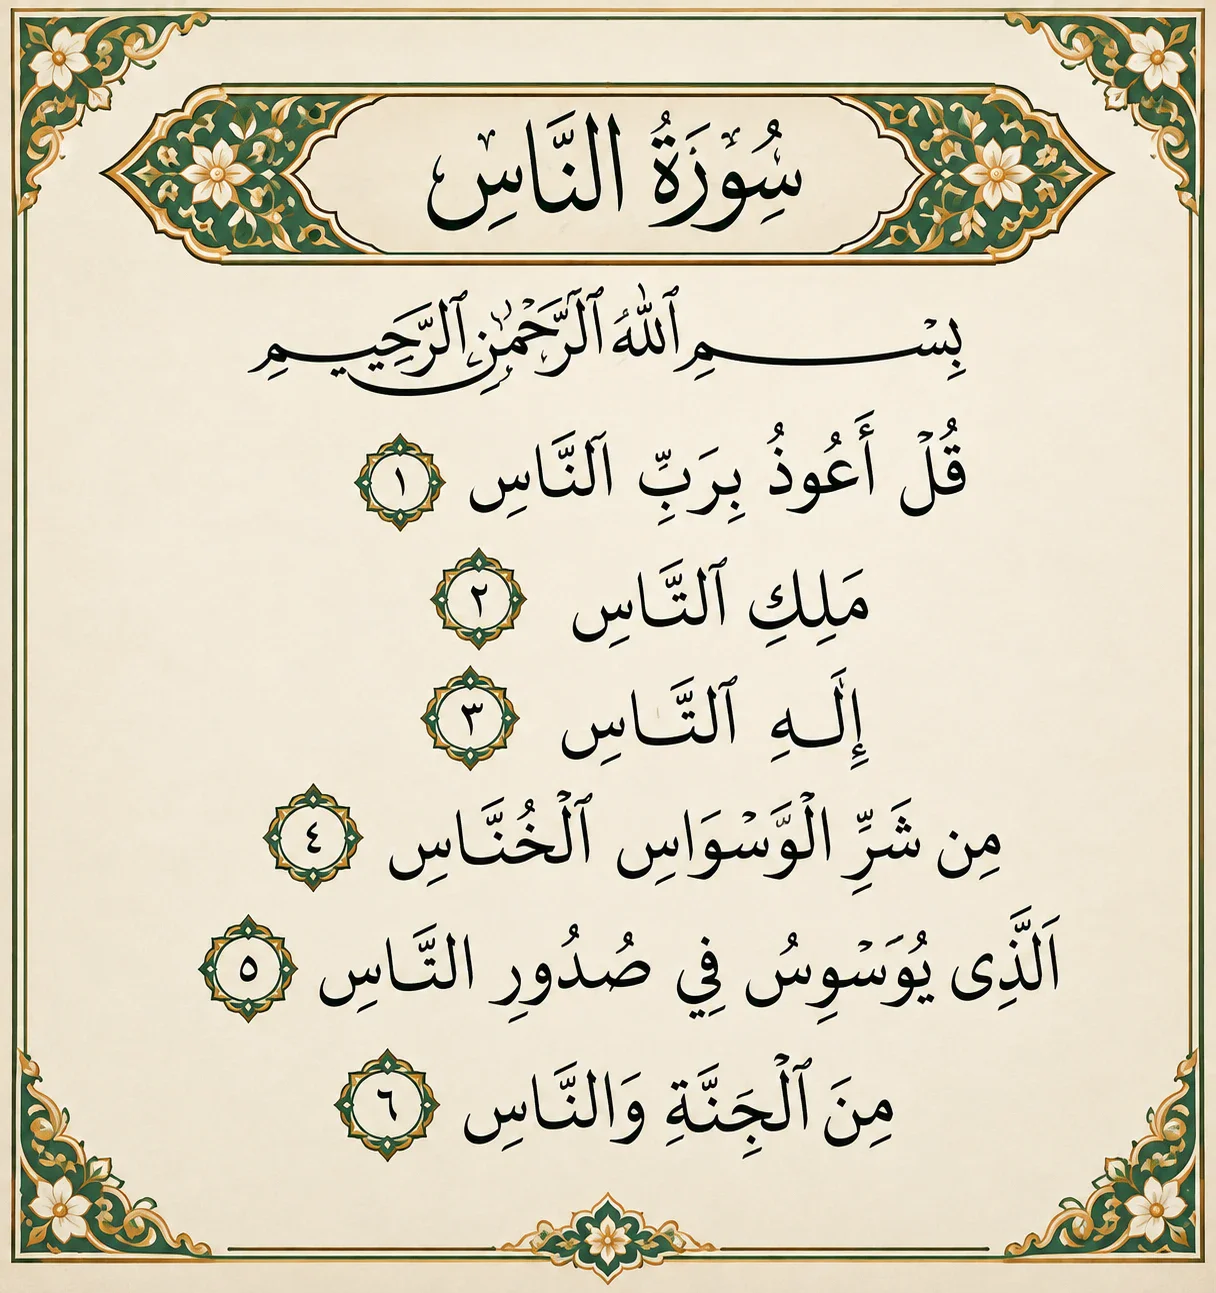 سُوزَةُ النَّاسِ
بِسْمِ ٱللهُ ٱلرَّحْمٰنِ ٱلرَّحِيمِ
قُلْ أَعُوذُ بِرَبِّ ٱلنَّاسِ ١
مَلِكِ ٱلتَّاسِ ٢
إِلَٰهِ ٱلتَّاسِ ٣
مِن شَرِّ الْوَّسْوَاسِ ٱلْخُنَّاسِ ٤
اَلَّذِى يُوَسْوِسُ فِي صُدُورِ التَّاسِ ٥
مِنَ ٱلْجِنَّةِ وَالنَّاسِ ٦